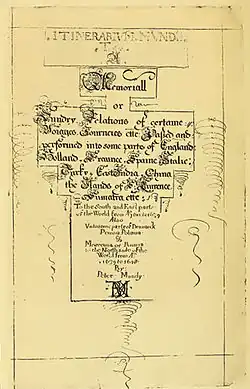 ITINERARIUM MUNDII
Memoriall
or
Sundry Relations of certaine
Voiages Journeies ettc Passed and
performed into some parts of England
Holland France Spaine Italie
Turky East India China
the Ilands of St Laurence
Sumatra ettc
To the South and East parts
of the World from
Also
Vnto some parts of Denmarck
Prussia Polonia
&
Moscovia or Russia
to the North side of the
World from Ao
1639 to 1648
By
Peter Mundy